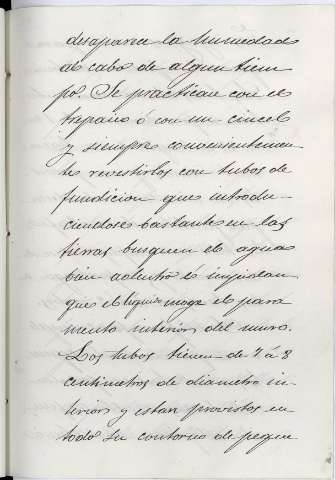 desaparece la humedad
al cabo de algun tiem
po. Se practican con el
trepano ó con un cincel
y siempre convenientemen
te revestirlos con tubos de
fundicion que introdu-
ciendose bastante en las
tierras busquen el agua
bien adentro é impidan
que el liquido moge el para
mento interior del muro.
Los tubos tienen de 7 á 8
centimetros de diametro in-
terior y estan provistos en
todo su contorno de peque